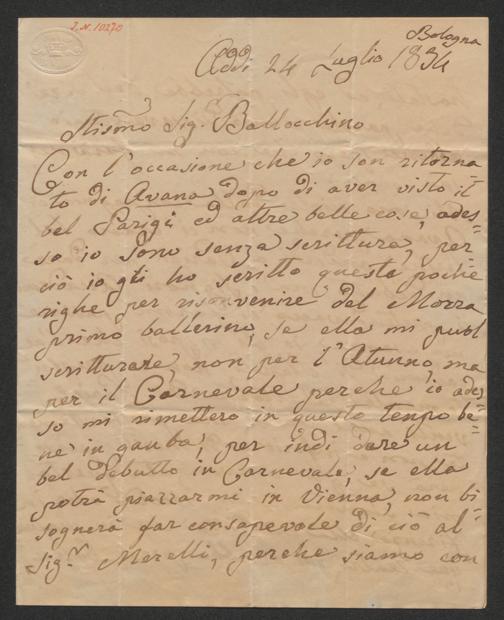 I.N. 10270
Bologna
Addi 24 Luglio 1834
Sig.r Ballocchino
Con l'occasione che io son ritorna
to di Avana dopo di aver visto il
bel Parigi ed altre belle cose, ades=
so io sono senza scrittura, per
ciò io gli ho scritto queste poche
righe per risovenire del Mozza
primo ballerino, se ella mi puol
scritturare, non per l'Atunno, ma
per il Carnevale perche io ades
so mi rimettero in questo tempo be=
ne in gamba, per indi dare un
bel debutto in Carnevale, se ella
potrà piazzarmi in Vienna, non bi
sognerà far consapevole di ciò al=
Sig.r Merelli, perche siamo con